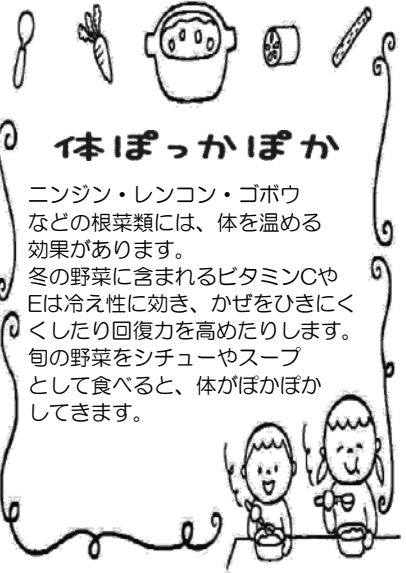 体ぽっかぽか
ニンジン・レンコン・ゴボウ
などの根菜類には、体を温める
効果があります。
冬の野菜に含まれるビタミンCや
Eは冷え性に効き、かぜをひきにく
くしたり回復力を高めたりします。
旬の野菜をシチューやスープ
として食べると、体がぽかぽか
してきます。